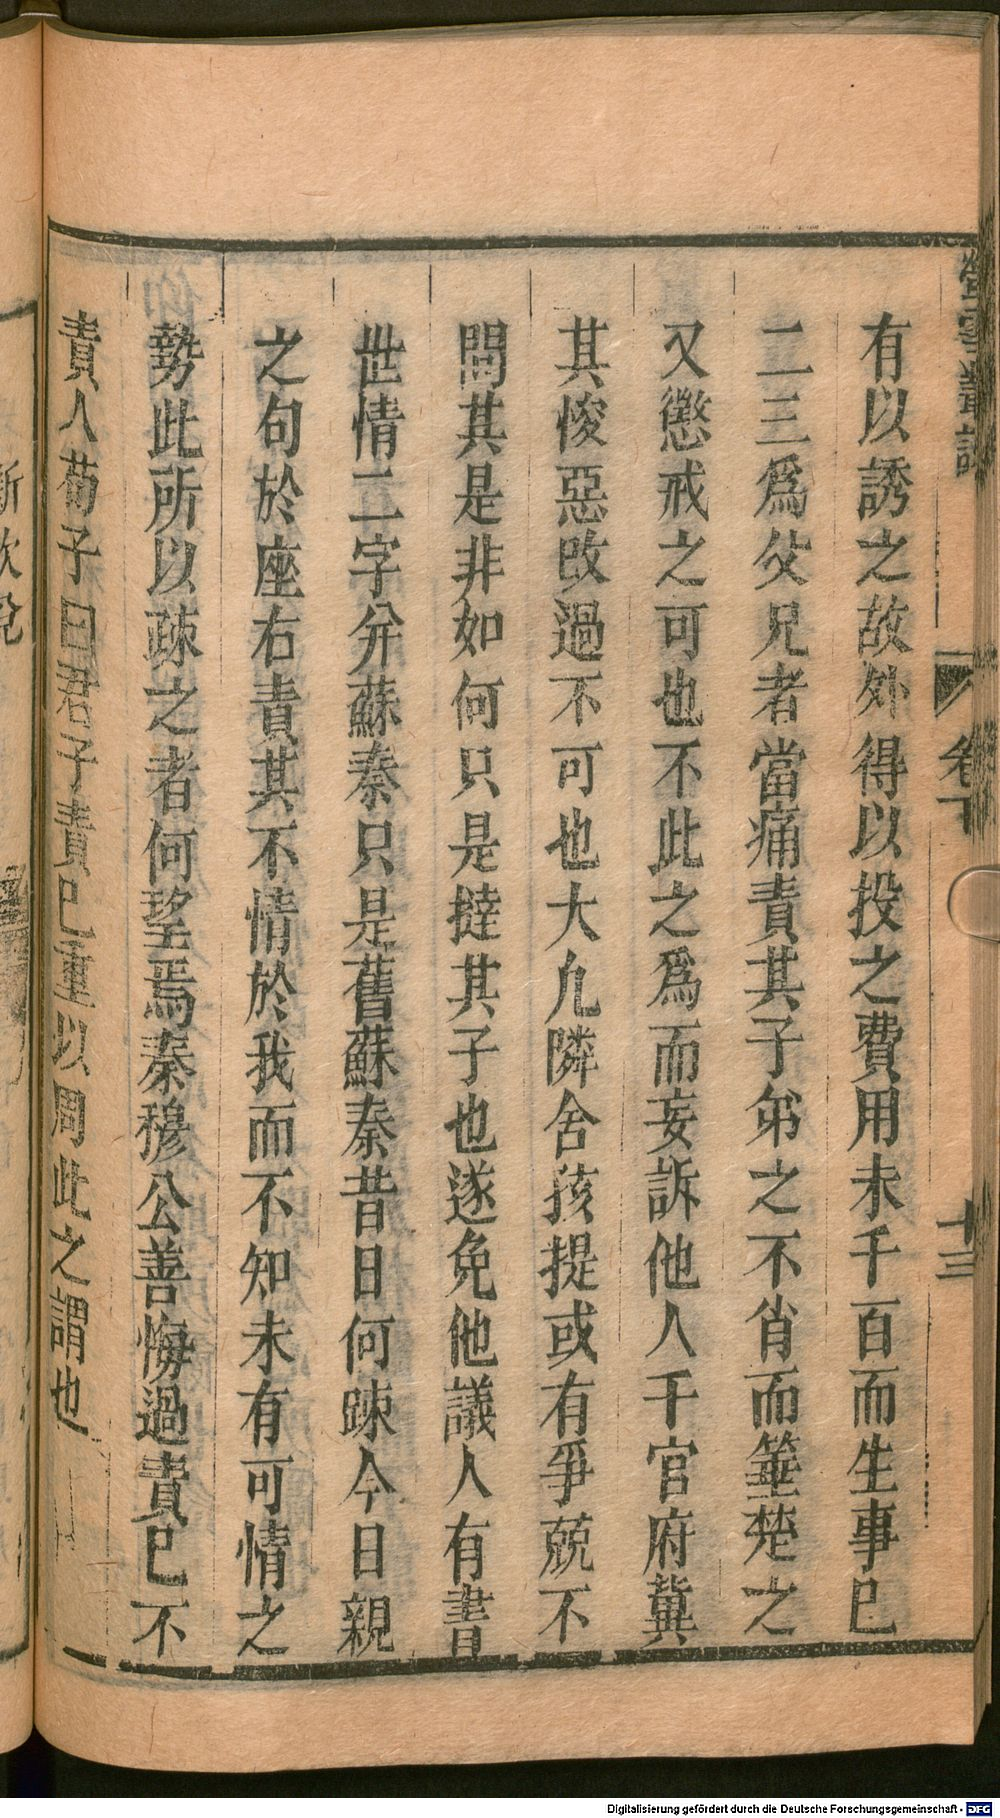 螢雪叢說 卷下 十三
有以誘之故外得以投之費用未千百而生事已
二三爲父兄者當痛責其子弟之不肖而箠楚之
又懲戒之可也不此之爲而妄訴他人干官府冀
其悛惡改過不可也大凡隣舍孩提或有爭兢不
問其是非如何只是撻其子也遂免他議人有書
世情二字分蘇秦只是舊蘇秦昔日何踈今日親
之句於座右責其不情於我而不知未有可情之
勢此所以疎之者何望焉秦穆公善悔過責已不
責人荀子曰君子責已重以周此之謂也
Digitalisierung gefördert durch die Deutsche Forschungsgemeinschaft - DFG